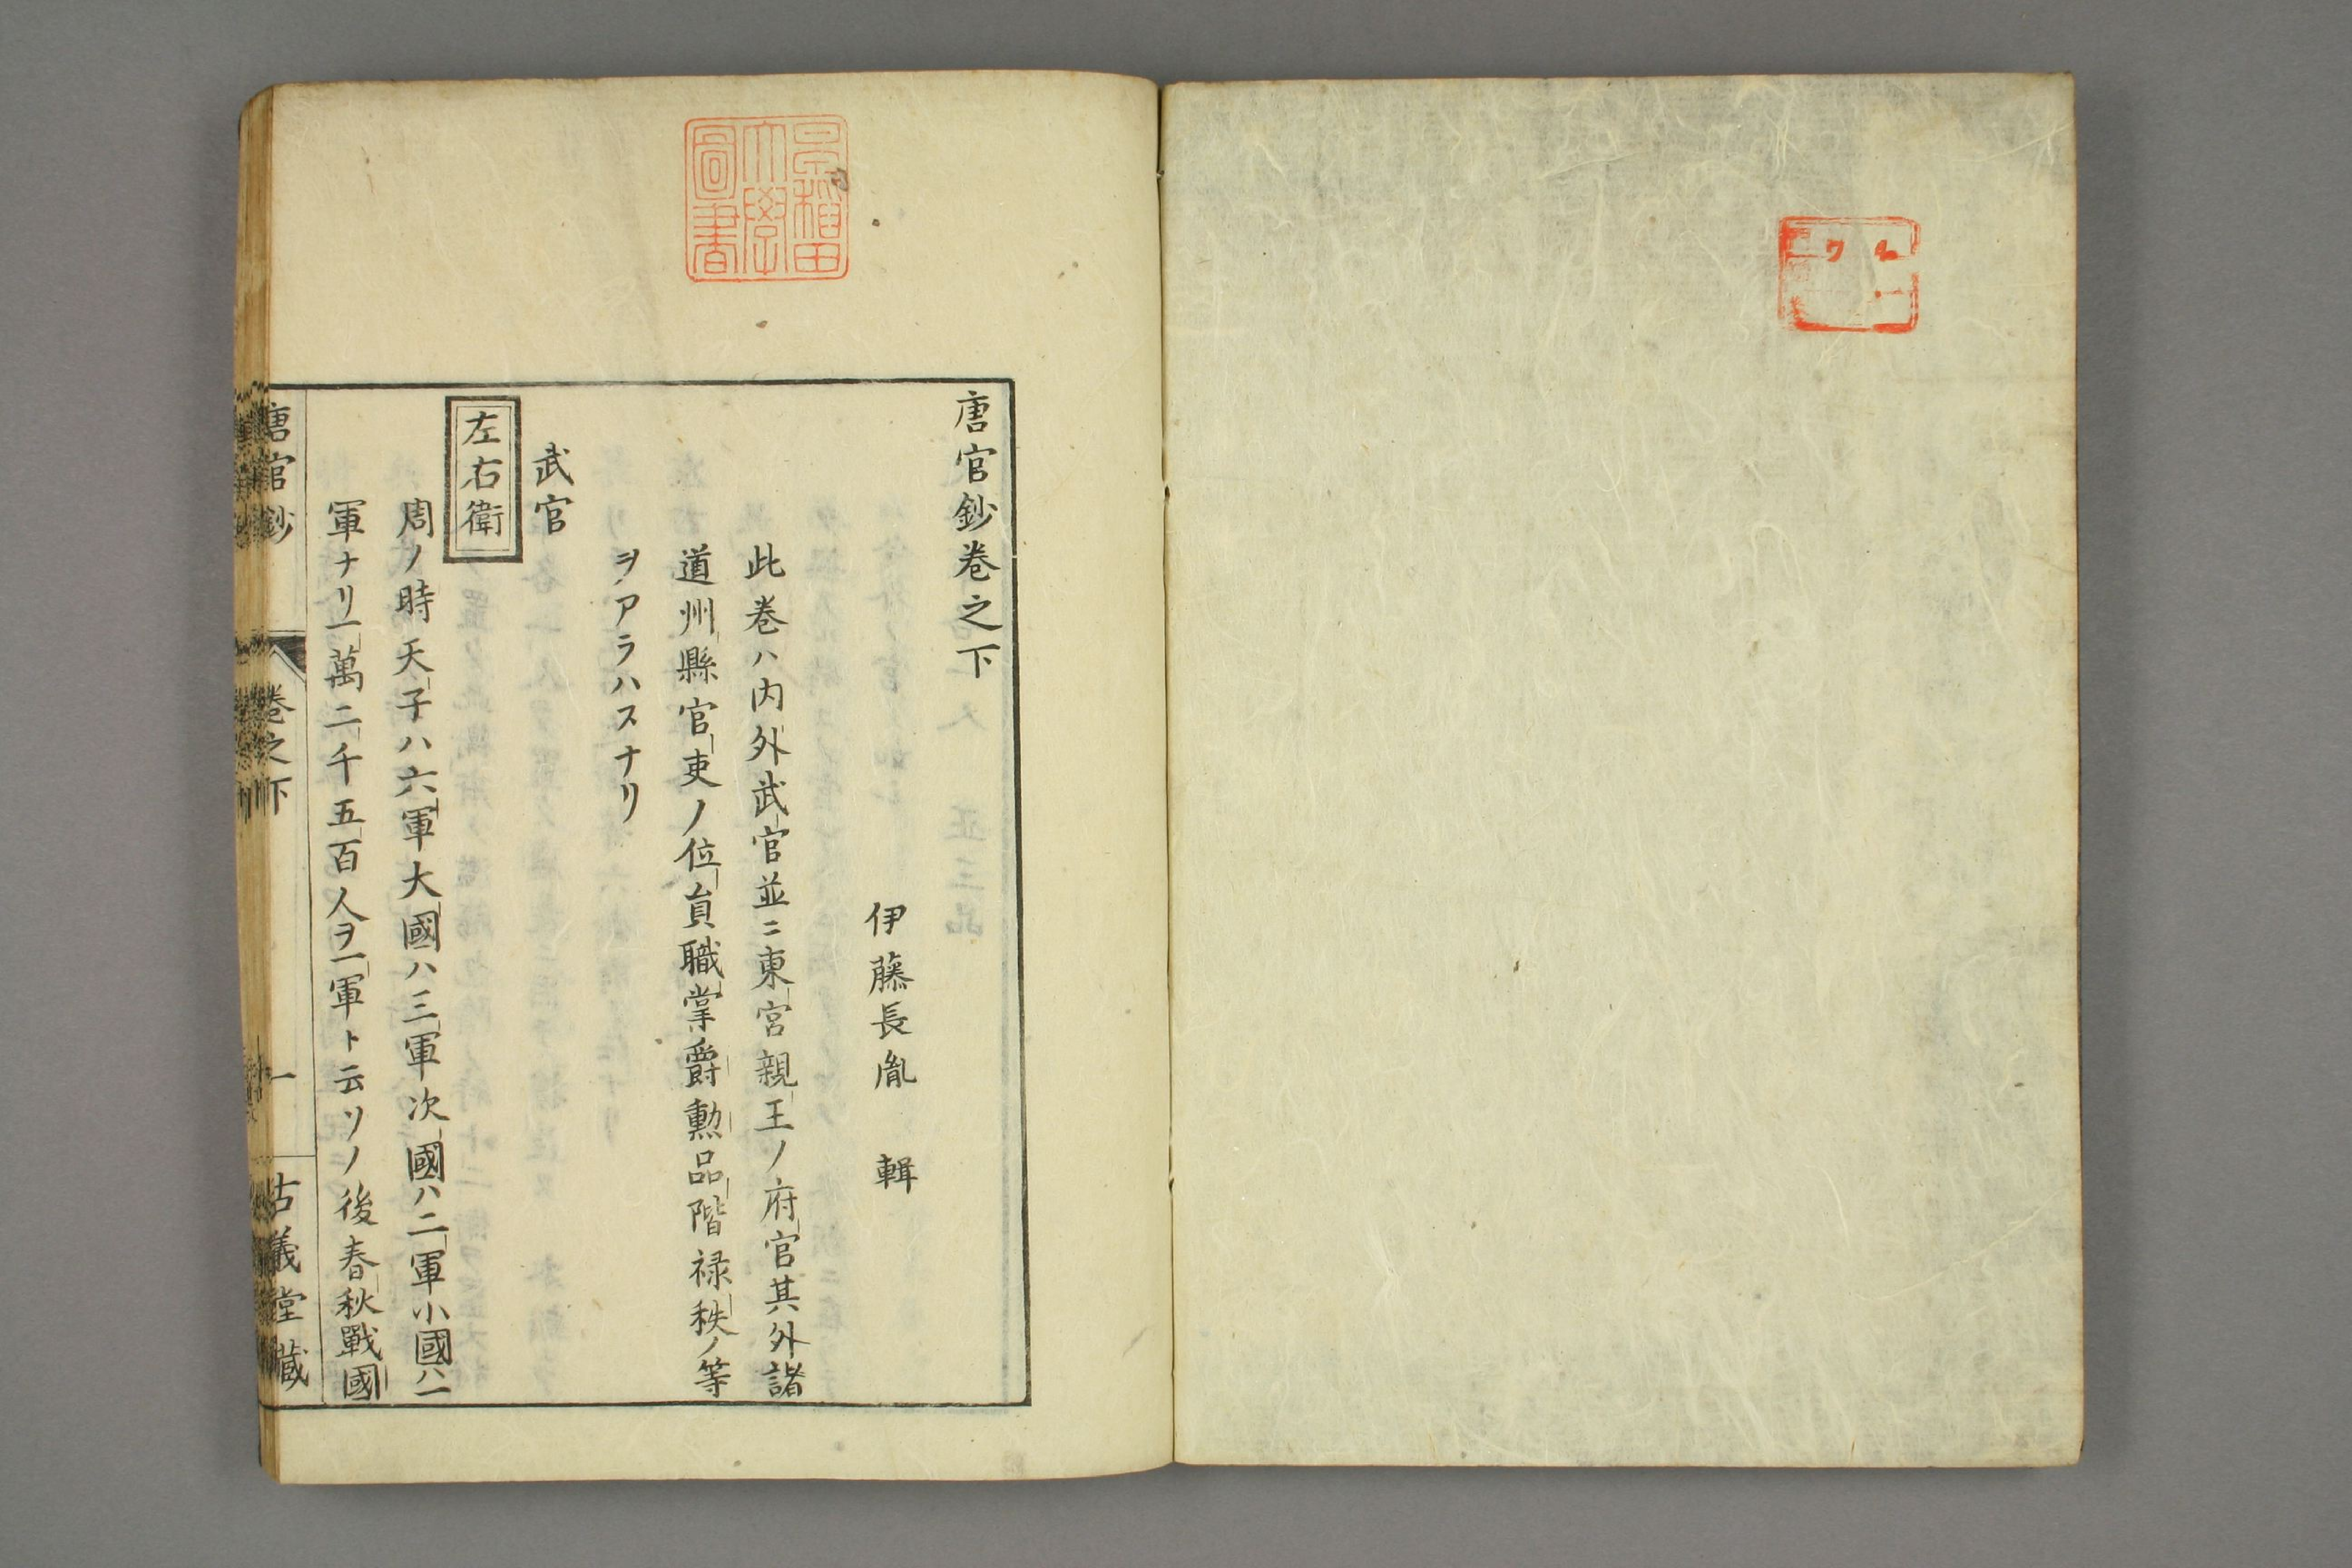 唐官鈔巻之下
伊藤長胤 輯
此巻ハ内外武官並ニ東宮親王ノ府官其外諸
道州縣官吏ノ位員職掌爵勲品階禄秩ノ等
ヲアラハスナリ
武官
左右衛
周ノ時天子ハ六軍大國ハ三軍次國ハ二軍小國ハ一
軍ナリ一萬二千五百人ヲ一軍ト云ソノ後春秋戰國
唐官鈔 巻之下 一 古義堂藏
早稲田大學圖書